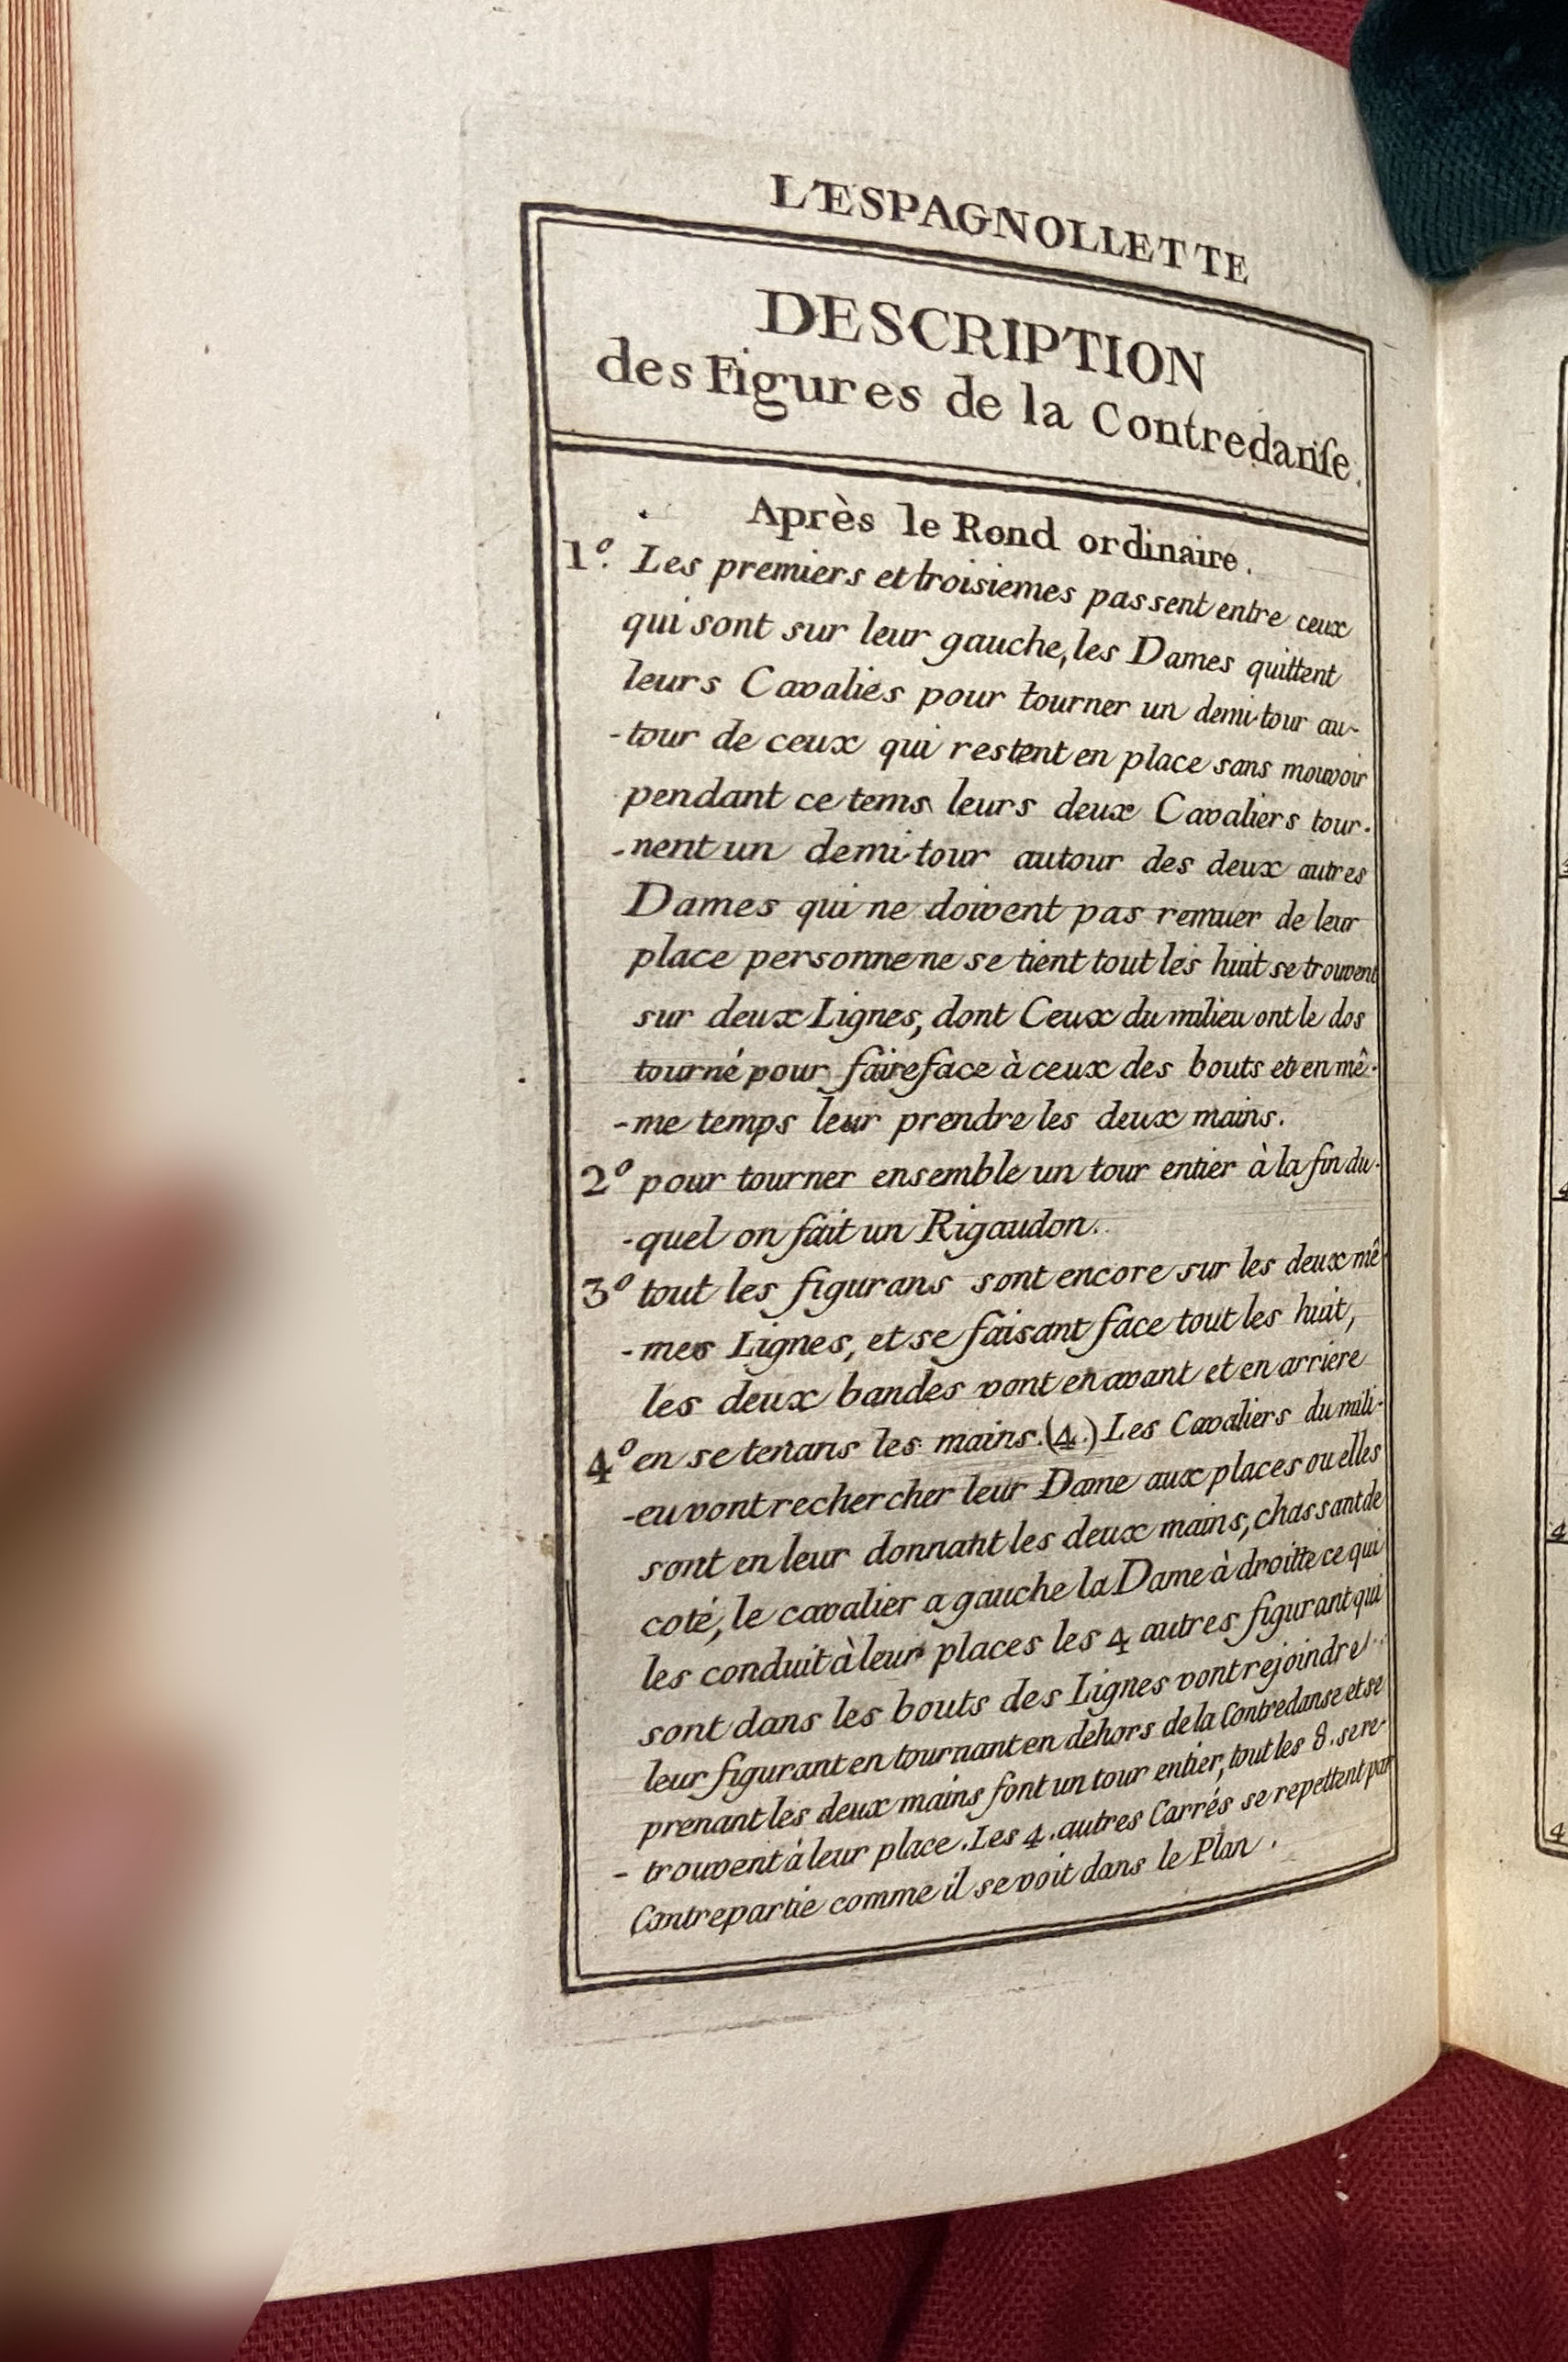 L'ESPAGNOLLETTE
DESCRIPTION
des Figures de la Contredanſe.
Après le Rond ordinaire.
1º. Les premiers et troisiemes passent entre ceux
qui sont sur leur gauche, les Dames quittent
leurs Cavaliés pour tourner un demi-tour au-
-tour de ceux qui restent en place sans mouvoir
pendant ce tems leurs deux Cavaliers tour-
-nent un demi-tour autour des deux autres
Dames qui ne doivent pas remuer de leur
place personne ne se tient tout les huit se trouvent
sur deux Lignes, dont Ceux du milieu ont le dos
tourné pour faire face à ceux des bouts et en mê-
-me temps leur prendre les deux mains.
2º pour tourner ensemble un tour entier à la fin du-
-quel on fait un Rigaudon.
3º tout les figurans sont encore sur les deux mê-
-mes Lignes, et se faisant face tout les huit,
les deux bandes vont en avant et en arriere
4º en se tenans les mains. (4.) Les Cavaliers du mili-
-eu vont rechercher leur Dame aux places ou elles
sont en leur donnant les deux mains, chassant de
coté, le cavalier a gauche la Dame à droitte ce qui
les conduit à leur places les 4 autres figurant qui
sont dans les bouts des Lignes vont rejoindre
leur figurant en tournant en dehors de la Contredanse et se
prenant les deux mains font un tour entier, tout les 8. se re-
- trouvent à leur place. Les 4. autres Carrés se repettent par
Contrepartie comme il se voit dans le Plan.
4
4
4